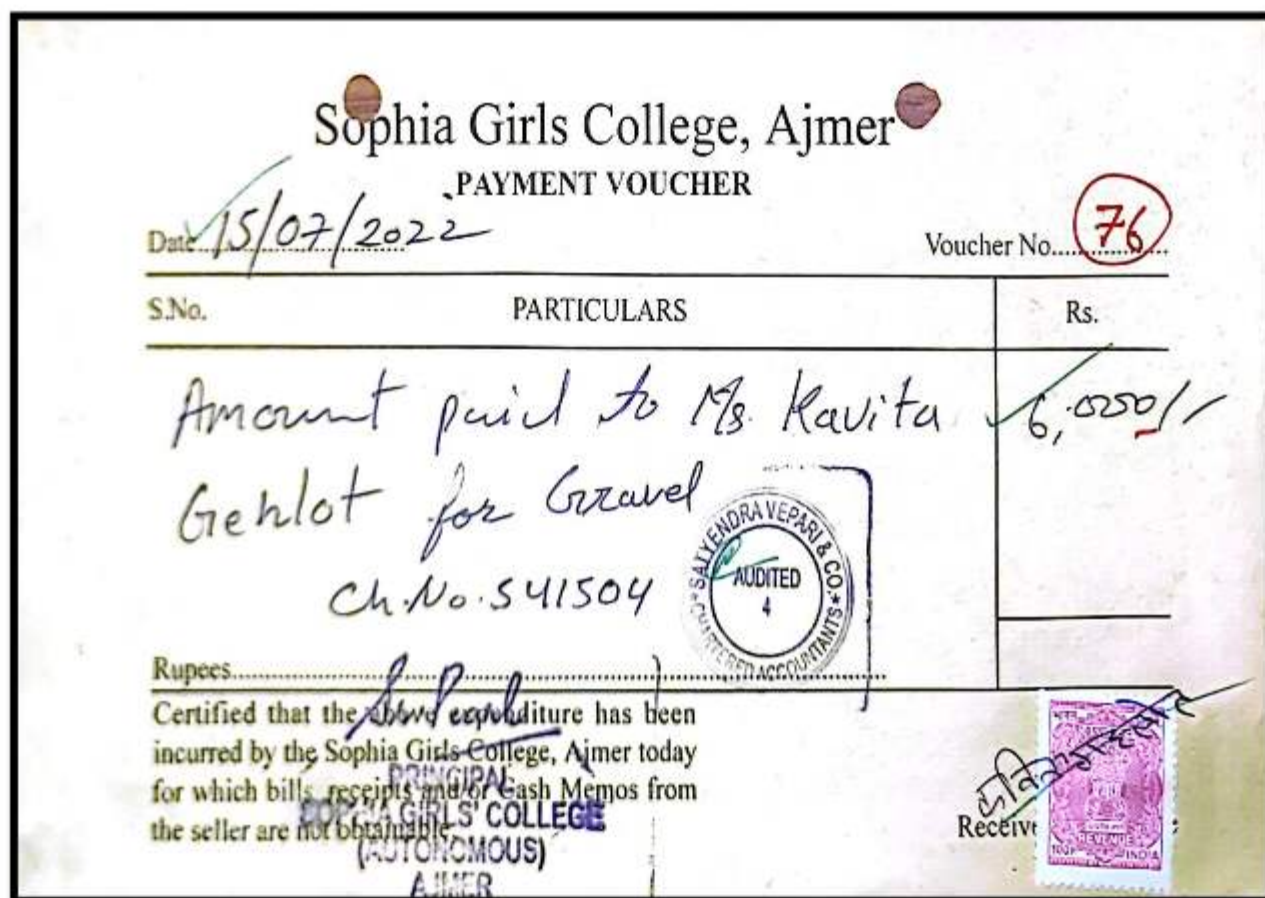 Sophia Girls College, Ajmer
PAYMENT VOUCHER
Date 15/07/2022
Voucher No. 76
S.No. PARTICULARS Rs.
Amount paid to Ms. Kavita 6,000/-
Gehlot for Gravel
Ch. No. 541504
SATYENDRA VEPARI & CO.
CHARTERED ACCOUNTANTS
AUDITED
4
Rupees
Certified that the above expenditure has been
incurred by the Sophia Girls College, Ajmer today
for which bills, receipts and/or Cash Memos from
the seller are not obtainable.
PRINCIPAL
SOPHIA GIRLS' COLLEGE
(AUTONOMOUS)
AJMER
REVENUE
INDIA